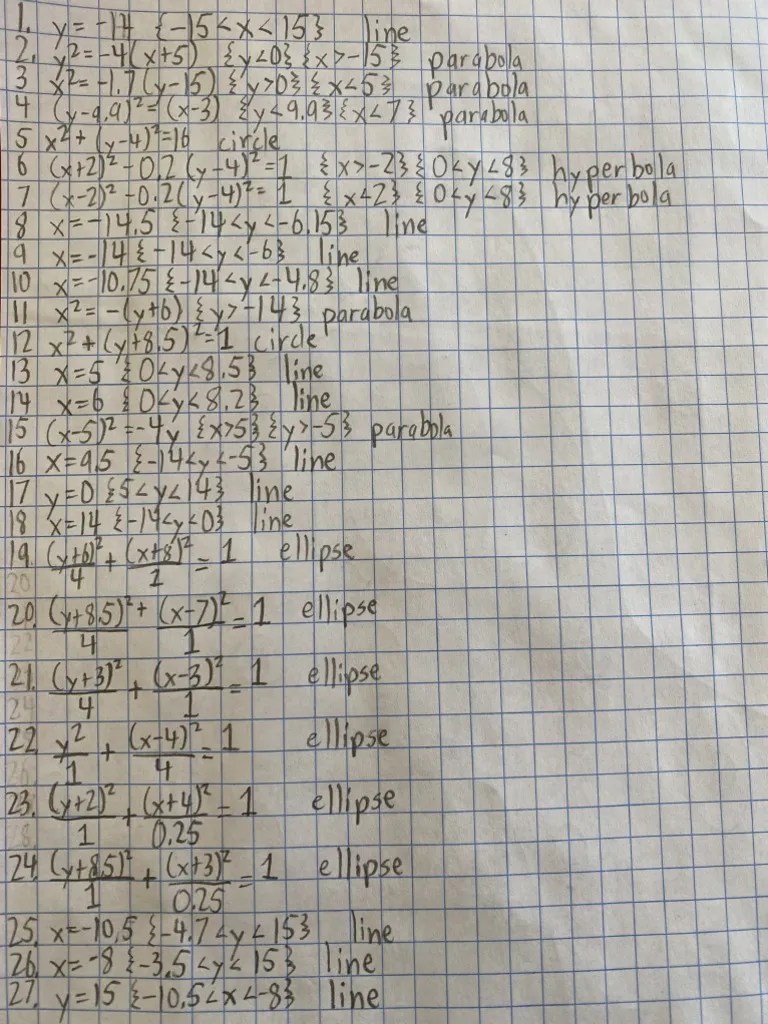 1. y = -14 {-15 < x < 15} line
2. y² = -4(x+5) {y<0} {x>-15} parabola
3 x² = -1.7(y-15) {y>0} {x<5} parabola
4 (y-9.9)² = (x-3) {y<9.9} {x<7} parabola
5 x² + (y-4)² = 16 circle
6 (x+2)² - 0.2(y-4)² = 1 {x>-2} {0<y<8} hyperbola
7 (x-2)² - 0.2(y-4)² = 1 {x<2} {0<y<8} hyperbola
8 x = -14.5 {-14<y<-6.15} line
9 x = -14 {-14<y<-6} line
10 x = -10.75 {-14<y<-4.8} line
11 x² = -(y+6) {y>-14} parabola
12 x² + (y+8.5)² = 1 circle
13 x = 5 {0<y<8.5} line
14 x = 6 {0<y<8.2} line
15 (x-5)² = -4y {x>5} {y>-5} parabola
16 x = 9.5 {-14<y<-5} line
17 y = 0 {5<y<14} line
18 x = 14 {-14<y<0} line
19. (y+6)²/4 + (x+8)²/2 = 1 ellipse
20. (y+8.5)²/4 + (x-7)²/1 = 1 ellipse
21. (y+3)²/4 + (x-3)²/1 = 1 ellipse
22 y²/1 + (x-4)²/4 = 1 ellipse
23. (y+2)²/1 + (x+4)²/0.25 = 1 ellipse
24. (y+8.5)²/1 + (x+3)²/0.25 = 1 ellipse
25. x = -10.5 {-4.7<y<15} line
26. x = -8 {-3.5<y<15} line
27. y = 15 {-10.5<x<-8} line